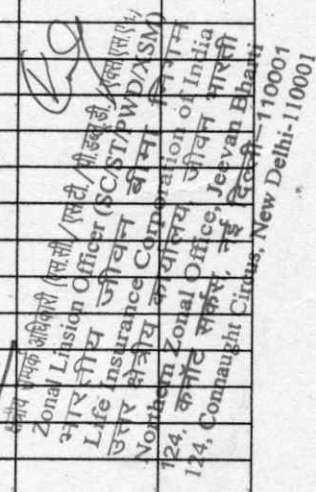 क्षेत्रीय सम्पर्क अधिकारी (एस.सी./एस.टी./पी.डब्ल्यू.डी./एक्स.एस.एम.)
Zonal Liasion Officer (SC/ST/PWD/XSM)
भारतीय जीवन बीमा निगम
Life Insurance Corporation of India
उत्तर क्षेत्रीय कार्यालय, जीवन भारती
Northern Zonal Office, Jeevan Bharti
124, कनॉट सर्कस, नई दिल्ली-110001
124, Connaught Circus, New Delhi-110001